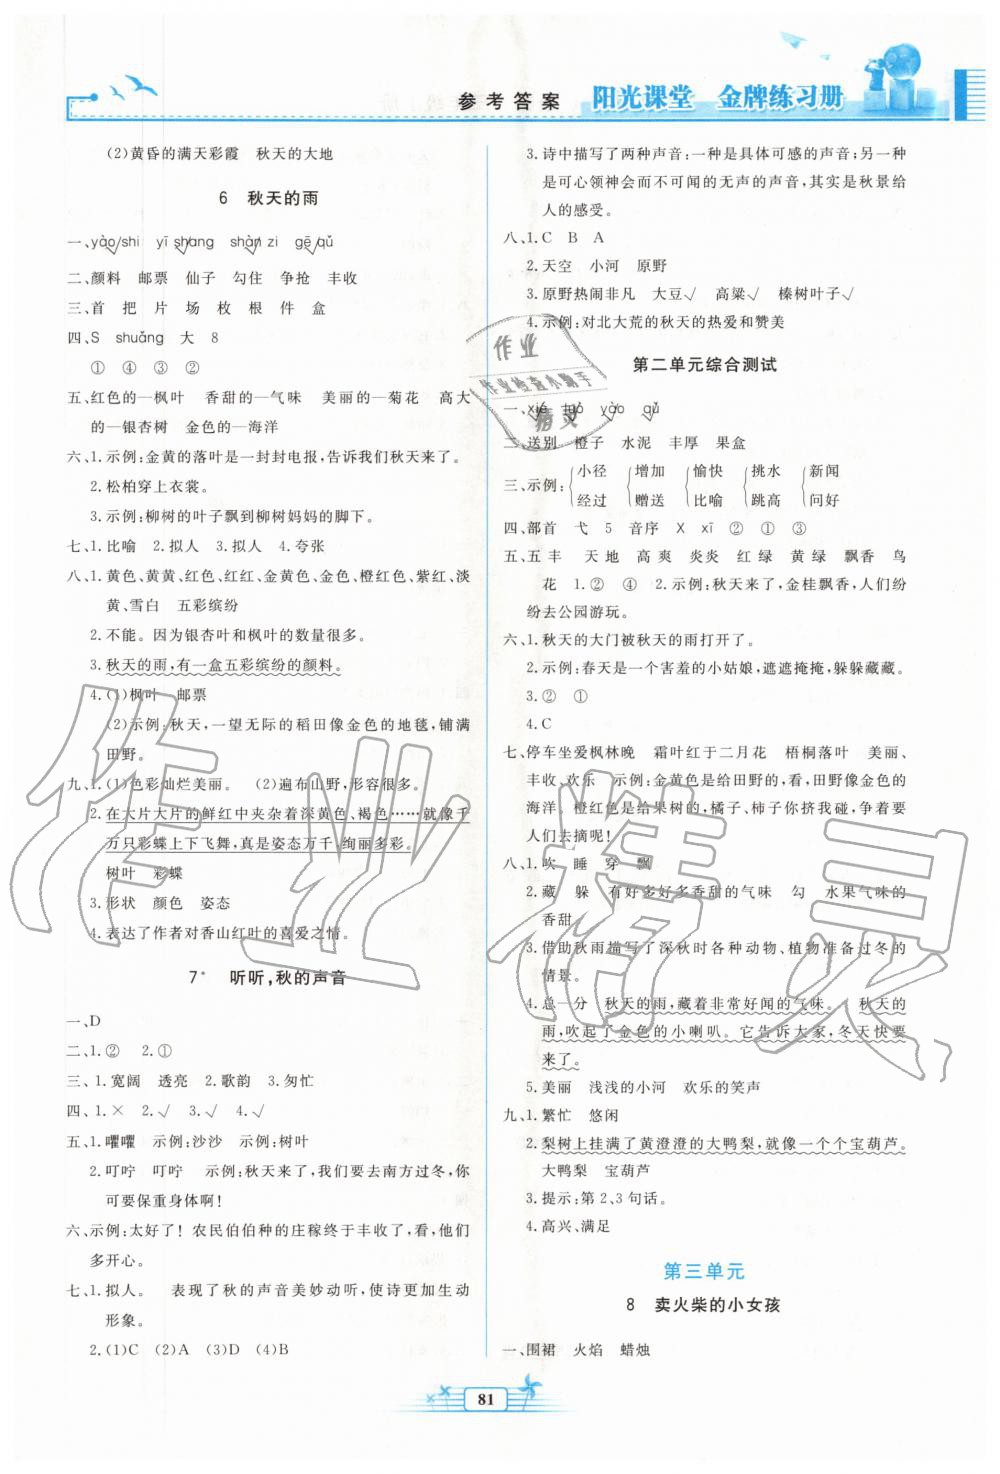 参考答案
阳光课堂 金牌练习册
(2)黄昏的满天彩霞 秋天的大地
6 秋天的雨
一、yào shi yī shang shàn zi gē qǔ
二、颜料 邮票 仙子 勾住 争抢 丰收
三、首 把 片 场 枚 根 件 盒
四、S shuǎng 大 8
① ④ ③ ②
五、红色的—枫叶 香甜的—气味 美丽的—菊花 高大
的—银杏树 金色的—海洋
六、1.示例:金黄的落叶是一封封电报,告诉我们秋天来了。
2.松柏穿上衣裳。
3.示例:柳树的叶子飘到柳树妈妈的脚下。
七、1.比喻 2.拟人 3.拟人 4.夸张
八、1.黄色、黄黄、红色、红红、金黄色、金色、橙红色、紫红、淡
黄、雪白 五彩缤纷
2.不能。因为银杏叶和枫叶的数量很多。
3.秋天的雨,有一盒五彩缤纷的颜料。
4.(1)枫叶 邮票
(2)示例:秋天,一望无际的稻田像金色的地毯,铺满
田野。
九、1.(1)色彩灿烂美丽。 (2)遍布山野,形容很多。
2.在大片大片的鲜红中夹杂着深黄色、褐色……就像千
万只彩蝶上下飞舞,真是姿态万千,绚丽多彩。
树叶 彩蝶
3.形状 颜色 姿态
4.表达了作者对香山红叶的喜爱之情。
7* 听听,秋的声音
一、D
二、1.② 2.①
三、1.宽阔 透亮 2.歌韵 3.匆忙
四、1.× 2.√ 3.√ 4.√
五、1.嚯嚯 示例:沙沙 示例:树叶
2.叮咛 叮咛 示例:秋天来了,我们要去南方过冬,你
可要保重身体啊!
六、示例:太好了! 农民伯伯种的庄稼终于丰收了,看,他们
多开心。
七、1.拟人。 表现了秋的声音美妙动听,使诗更加生动
形象。
2.(1)C (2)A (3)D (4)B
3.诗中描写了两种声音:一种是具体可感的声音;另一种
是可心领神会而不可闻的无声的声音,其实是秋景给
人的感受。
八、1.C B A
2.天空 小河 原野
3.原野热闹非凡 大豆√ 高粱√ 榛树叶子√
4.示例:对北大荒的秋天的热爱和赞美
第二单元综合测试
一、xié yào qǔ
二、送别 橙子 水泥 丰厚 果盒
三、示例: 小径 增加 愉快 挑水 新闻
经过 赠送 比喻 跳高 问好
四、部首 弋 5 音序 X xī ② ① ③
五、五 丰 天 地 高 爽 炎炎 红 绿 黄 绿 飘香 鸟
花 1.② ④ 2.示例:秋天来了,金桂飘香,人们纷
纷去公园游玩。
六、1.秋天的大门被秋天的雨打开了。
2.示例:春天是一个害羞的小姑娘,遮遮掩掩,躲躲藏藏。
3.② ①
4.C
七、停车坐爱枫林晚 霜叶红于二月花 梧桐落叶 美丽、
丰收、欢乐 示例:金黄色是给田野的,看,田野像金色的
海洋。橙红色是给果树的,橘子、柿子你挤我碰,争着要
人们去摘呢!
八、1.吹 睡 穿 飘
2.藏 躲 有好多好多香甜的气味 勾 水果气味的
香甜
3.借助秋雨描写了深秋时各种动物、植物准备过冬的
情景。
4.总—分 秋天的雨,藏着非常好闻的气味。 秋天的
雨,吹起了金色的小喇叭。它告诉大家,冬天快要
来了。
5.美丽 浅浅的小河 欢乐的笑声
九、1.繁忙 悠闲
2.梨树上挂满了黄澄澄的大鸭梨,就像一个个宝葫芦。
大鸭梨 宝葫芦
3.提示:第2、3句话。
4.高兴、满足
第三单元
8 卖火柴的小女孩
一、围裙 火焰 蜡烛
81
作业
作业检查小帮手
精灵
作业精灵